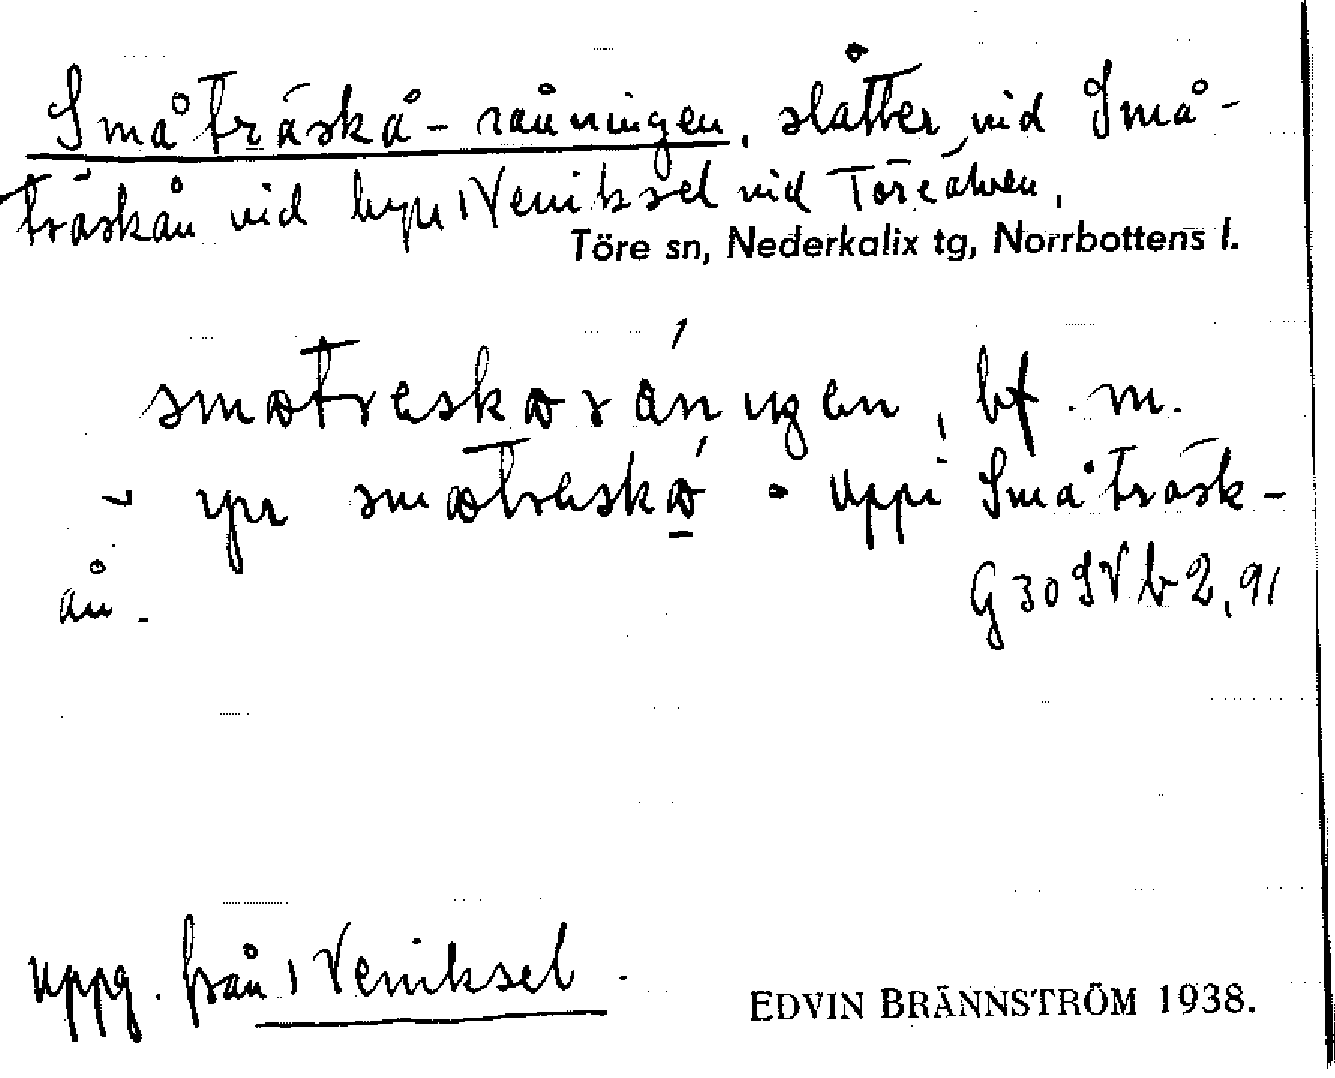 Småträskå-råningen, slåtter vid Små-
träskån vid byn Veniksel vid Töreälven.
Töre sn, Nederkalix tg, Norrbottens l.
smɑtreskɑrɑ́nıŋen, bf. m.
- ypı smɑtreskɑ́ • uppi Småträsk-
ån.
G 30 SV b 2, 91
Uppg. från Veniksel.
EDVIN BRÄNNSTRÖM 1938.